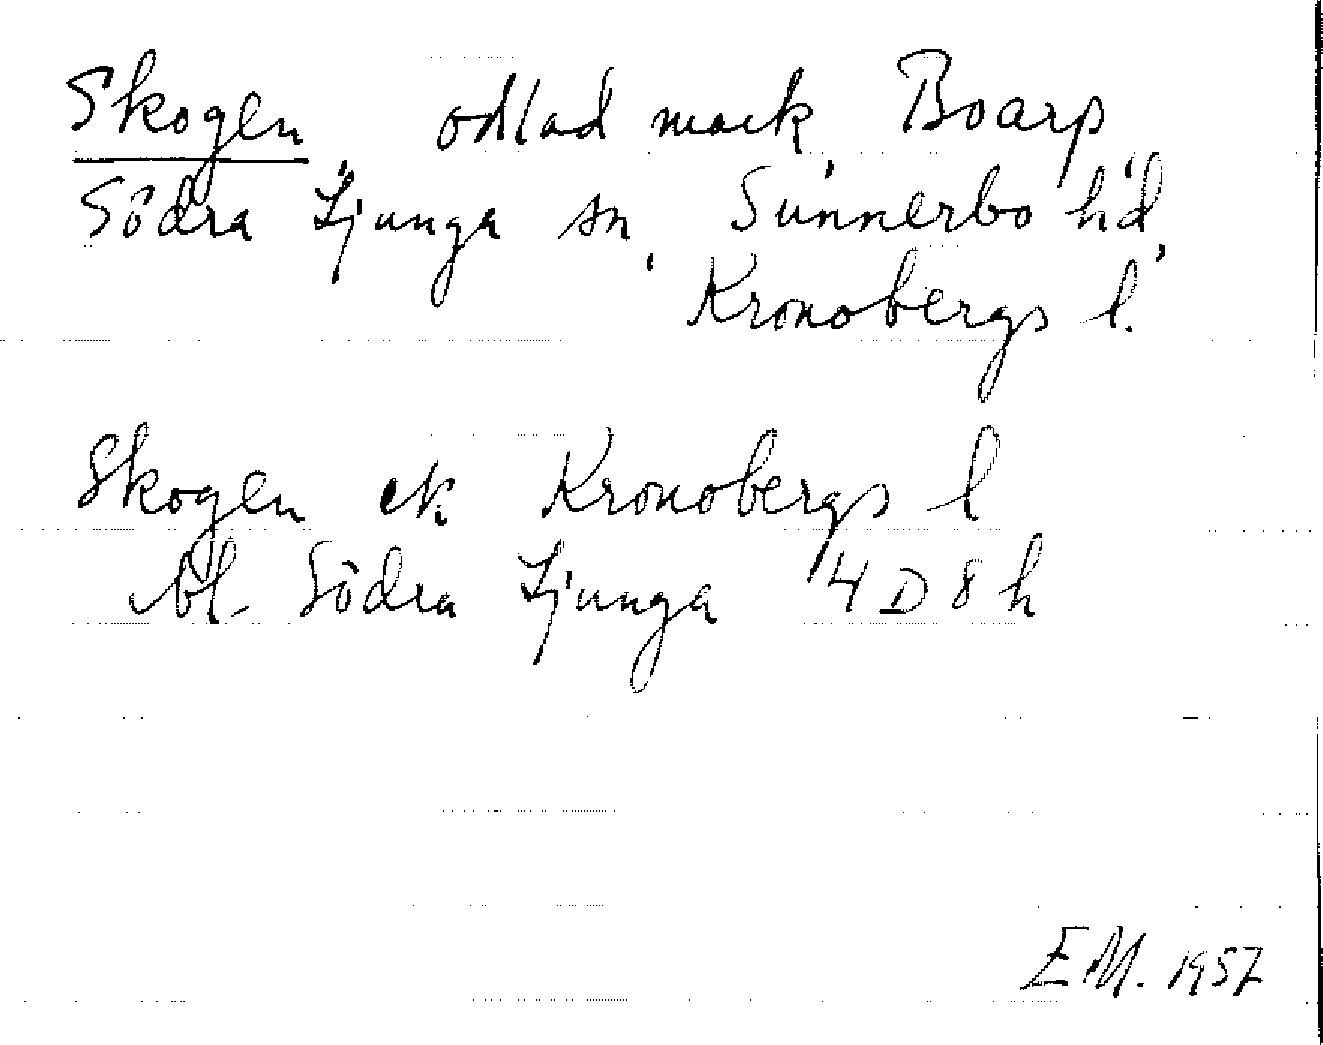 Skogen, odlad mark, Boarp,
Södra Ljunga sn, Sunnerbo hd,
Kronobergs l.
Skogen ek Kronobergs l
bl. Södra Ljunga 4D8h
E M. 1957